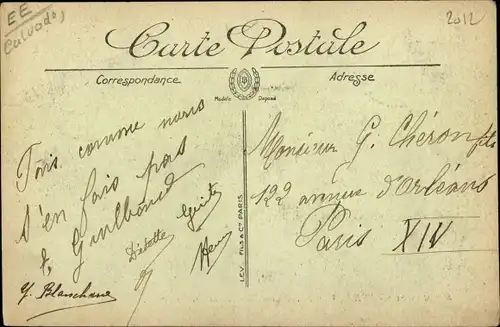 EE
Calvados
2012
Carte Postale
Correspondance
Adresse
Modèle Déposé
Fais comme nous
t'en fais pas
Y. Blanchard
Henri
LEV. FILS & Cie PARIS
Monsieur G. Chéron fils
122 avenue d'Orléans
Paris XIV